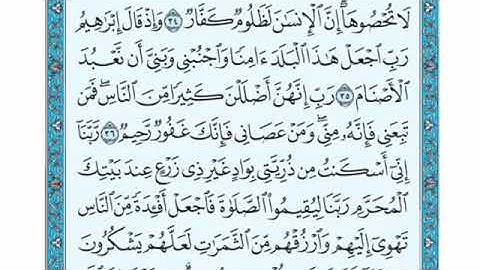 لَا تُحْصُوهَآ ۗ إِنَّ ٱلْإِنسَٰنَ لَظَلُومٌ كَفَّارٌ ٣٤ وَإِذْ قَالَ إِبْرَٰهِيمُ
رَبِّ ٱجْعَلْ هَٰذَا ٱلْبَلَدَ ءَامِنًا وَٱجْنُبْنِى وَبَنِىَّ أَن نَّعْبُدَ
ٱلْأَصْنَامَ ٣٥ رَبِّ إِنَّهُنَّ أَضْلَلْنَ كَثِيرًا مِّنَ ٱلنَّاسِ ۖ فَمَن
تَبِعَنِى فَإِنَّهُۥ مِنِّى ۖ وَمَنْ عَصَانِى فَإِنَّكَ غَفُورٌ رَّحِيمٌ ٣٦ رَّبَّنَآ
إِنِّىٓ أَسْكَنتُ مِن ذُرِّيَّتِى بِوَادٍ غَيْرِ ذِى زَرْعٍ عِندَ بَيْتِكَ
ٱلْمُحَرَّمِ رَبَّنَا لِيُقِيمُوا۟ ٱلصَّلَوٰةَ فَٱجْعَلْ أَفْـِٔدَةً مِّنَ ٱلنَّاسِ
تَهْوِىٓ إِلَيْهِمْ وَٱرْزُقْهُم مِّنَ ٱلثَّمَرَٰتِ لَعَلَّهُمْ يَشْكُرُونَ